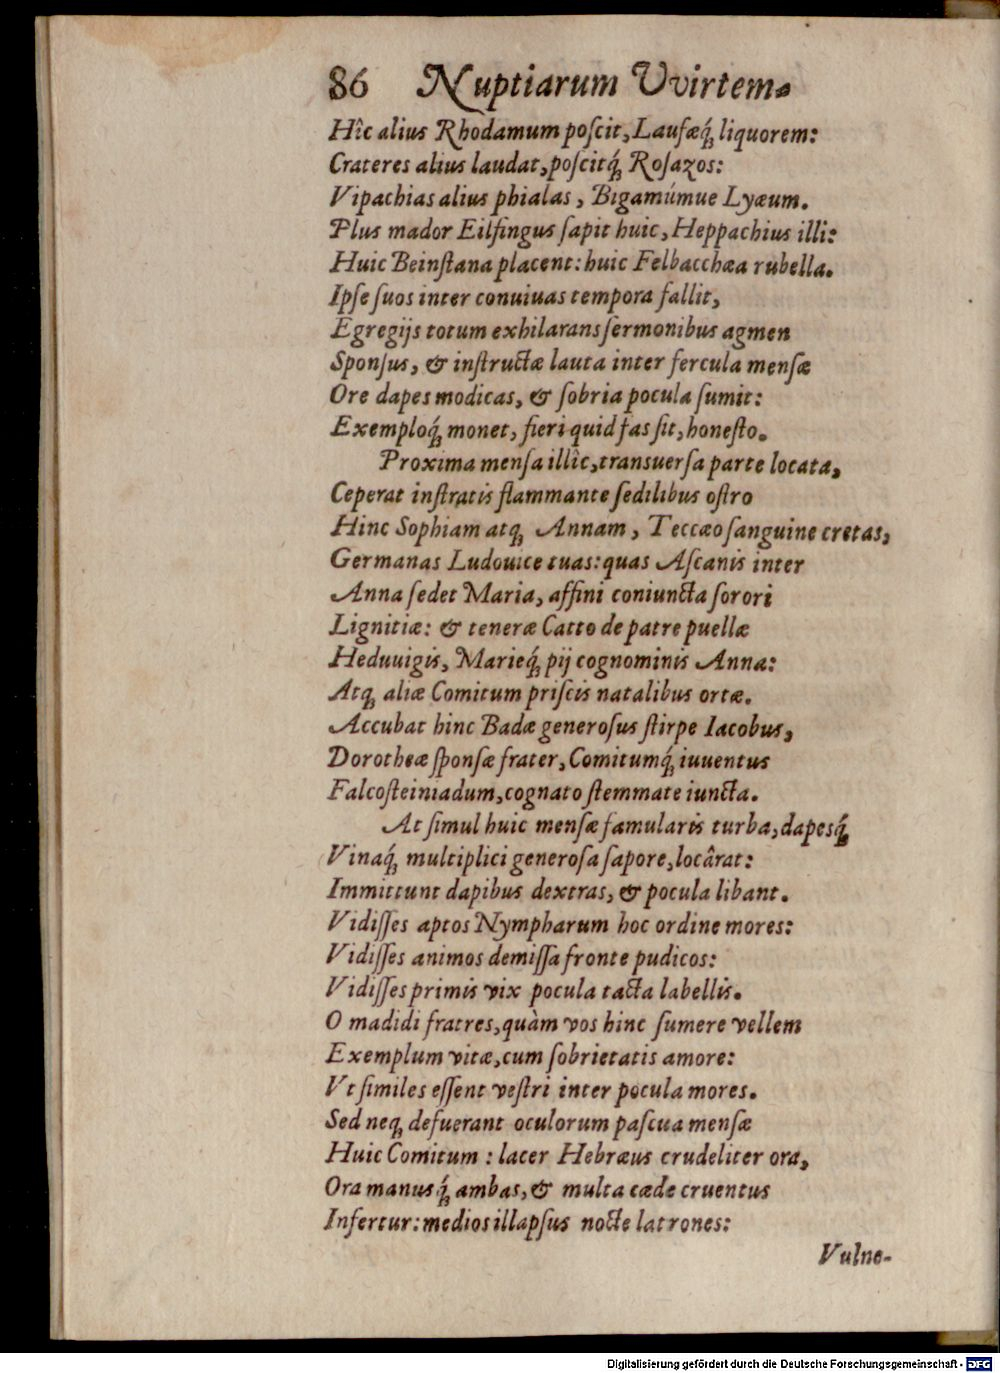 86 Nuptiarum Vvirtem-
Hîc alius Rhodamum poſcit, Lauſæq́ꝫ liquorem:
Crateres alius laudat, poſcitq́ꝫ Roſazos:
Vipachias alius phialas, Bigamúmue Lyæum.
Plus mador Eilfingus ſapit huic, Heppachius illi:
Huic Beinſtana placent: huic Felbacchæa rubella.
Ipſe ſuos inter conuiuas tempora fallit,
Egregijs totum exhilarans ſermonibus agmen
Sponſus, & inſtructæ lauta inter fercula menſæ
Ore dapes modicas, & ſobria pocula ſumit:
Exemploq́ꝫ monet, fieri quid fas ſit, honeſto.
Proxima menſa illîc, transuerſa parte locata,
Ceperat inſtratis flammante ſedilibus oſtro
Hinc Sophiam atqꝫ Annam, Teccæo ſanguine cretas,
Germanas Ludouice tuas: quas Aſcanis inter
Anna ſedet Maria, affini coniuncta ſorori
Lignitiæ: & teneræ Catto de patre puellæ
Heduuigis, Marieq́ꝫ pij cognominis Anna:
Atqꝫ aliæ Comitum priſcis natalibus ortæ.
Accubat hinc Badæ generoſus ſtirpe Iacobus,
Dorotheæ ſponſæ frater, Comitumq́ꝫ iuuentus
Falcoſteiniadum, cognato ſtemmate iuncta.
At ſimul huic menſæ famularis turba, dapesq́ꝫ
Vinaq́ꝫ multiplici generoſa ſapore, locârat:
Immittunt dapibus dextras, & pocula libant.
Vidiſſes aptos Nympharum hoc ordine mores:
Vidiſſes animos demiſſa fronte pudicos:
Vidiſſes primis vix pocula tacta labellis.
O madidi fratres, quàm vos hinc ſumere vellem
Exemplum vitæ, cum ſobrietatis amore:
Vt ſimiles eſſent veſtri inter pocula mores.
Sed neqꝫ defuerant oculorum paſcua menſæ
Huic Comitum: lacer Hebræus crudeliter ora,
Ora manusq́ꝫ ambas, & multa cæde cruentus
Infertur: medios illapſus nocte latrones:
Vulne-
Digitalisierung gefördert durch die Deutsche Forschungsgemeinschaft - DFG